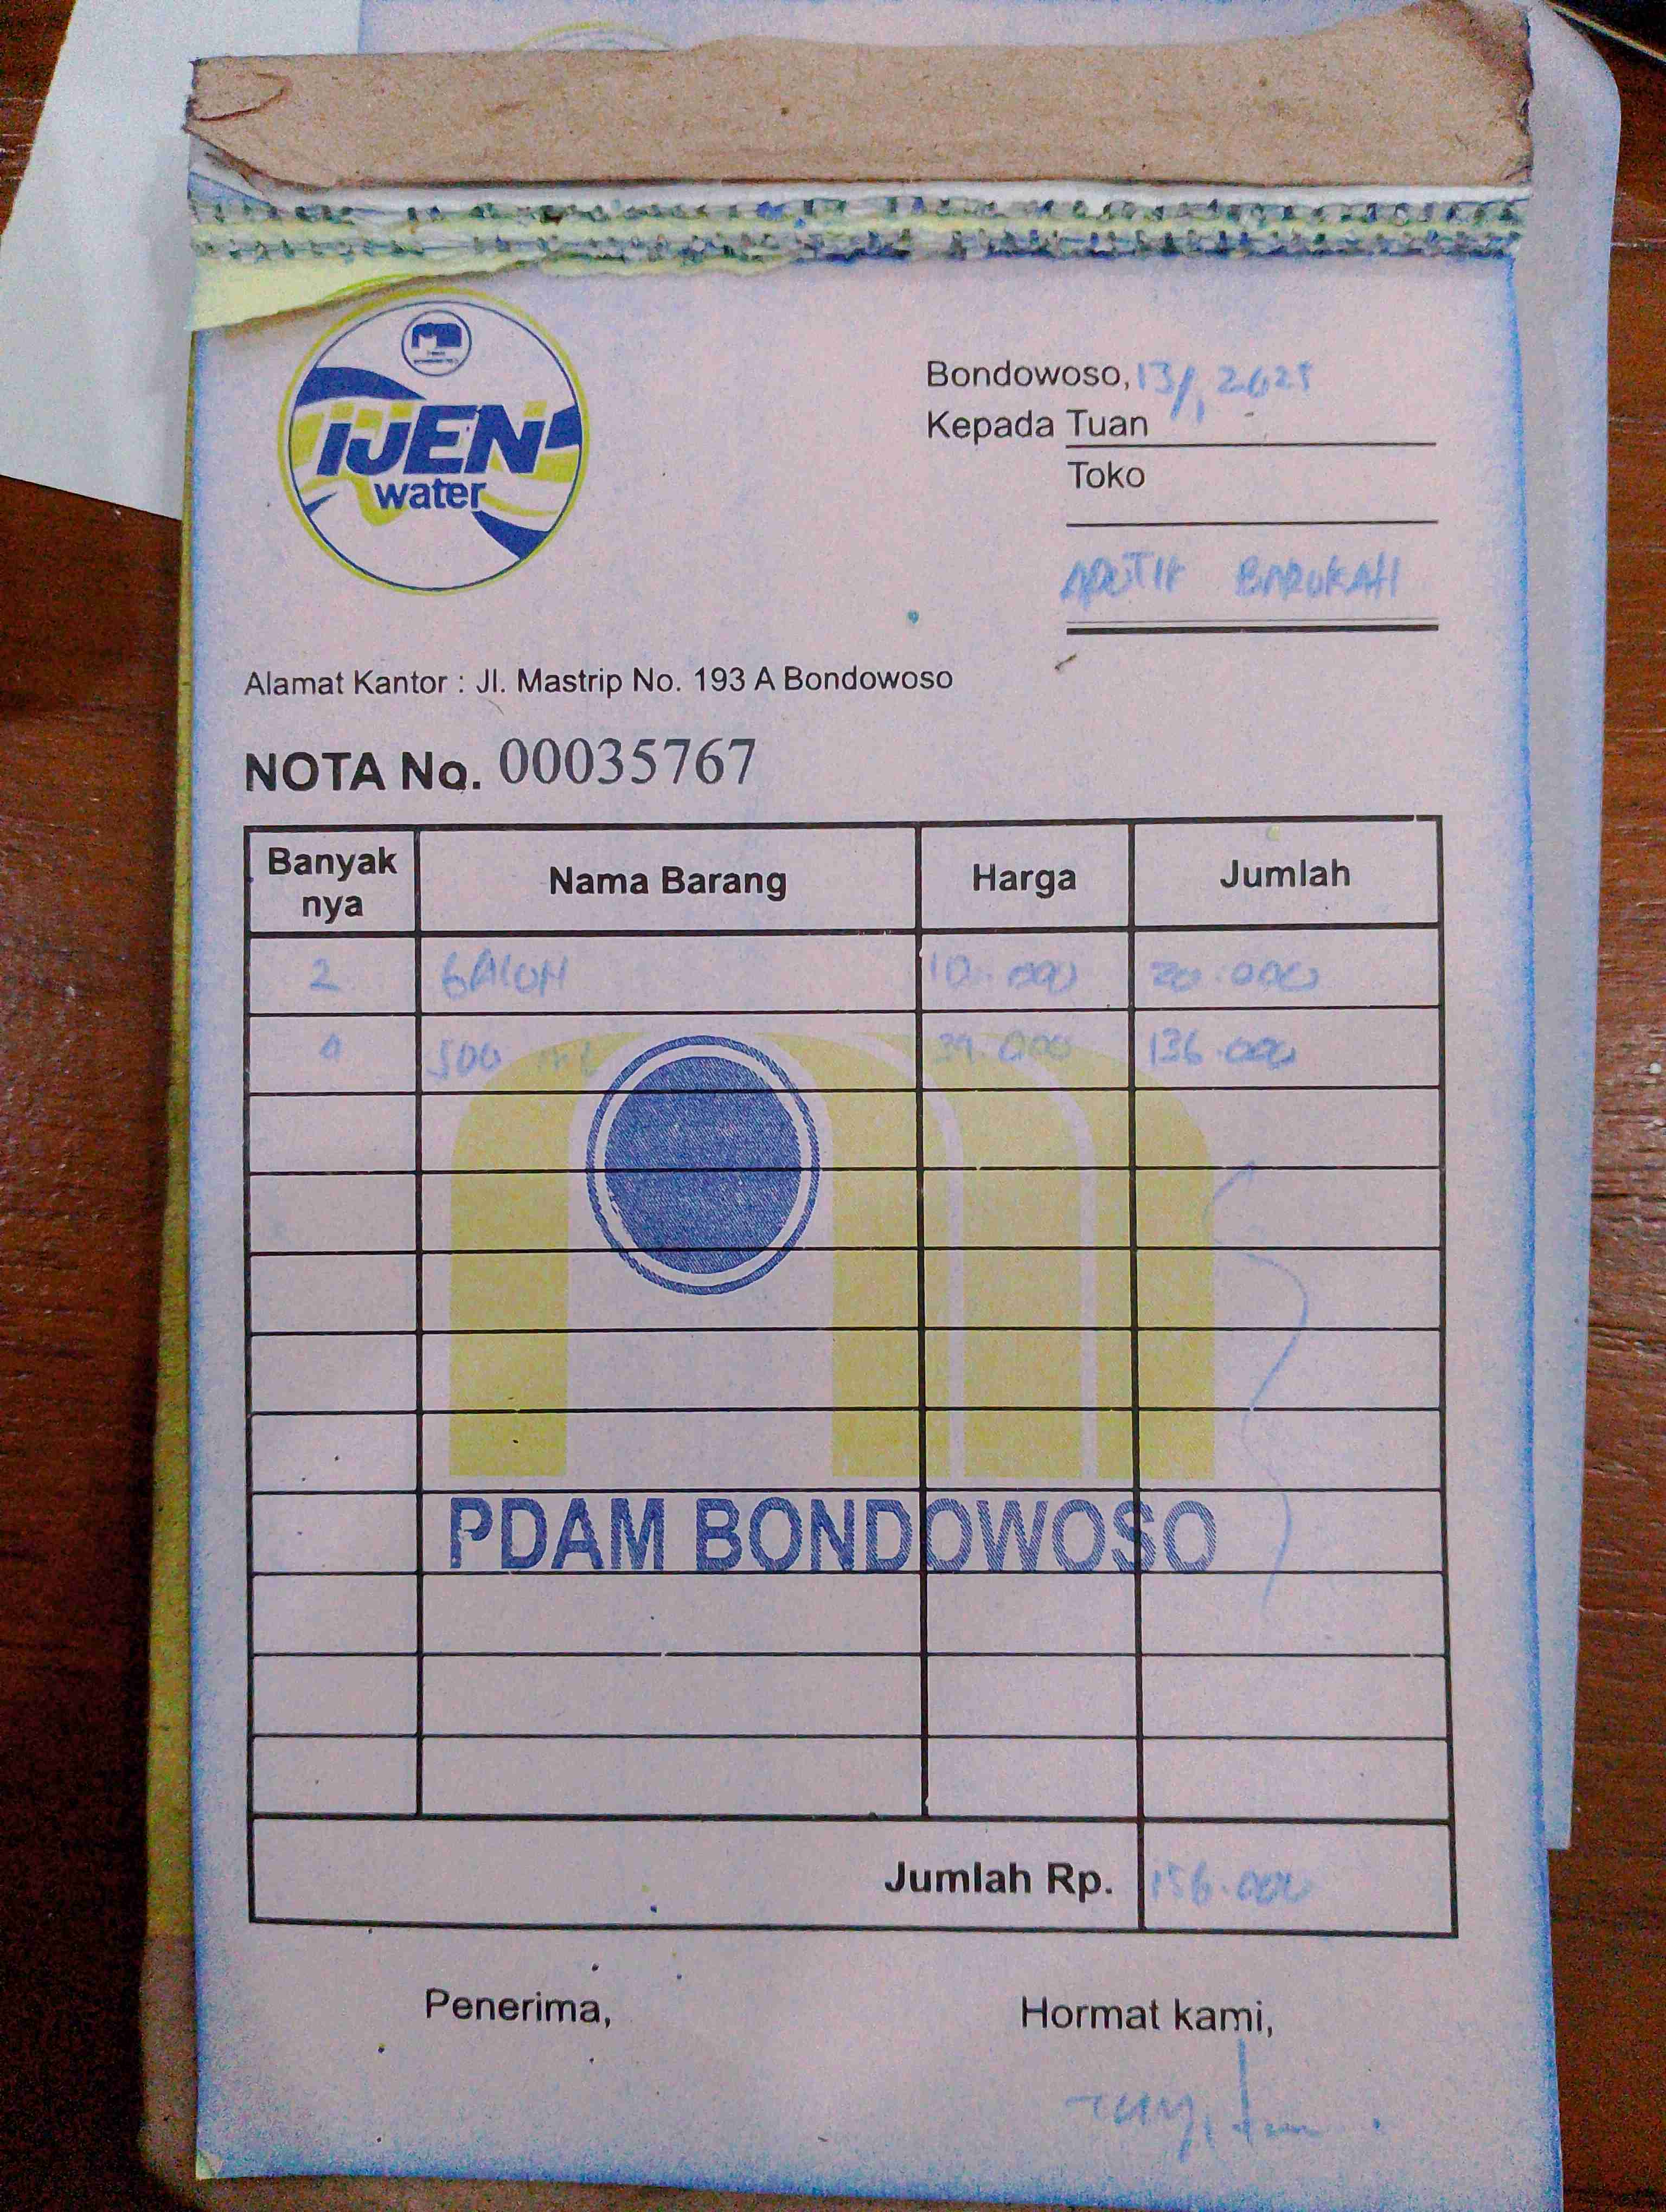 IJEN
water
Bondowoso, 13/1 2025
Kepada Tuan
Toko
APOTIK BAROKAH
Alamat Kantor : Jl. Mastrip No. 193 A Bondowoso
NOTA No. 00035767
Banyak nya Nama Barang Harga Jumlah
2 GALON 10.000 20.000
4 500 ML 34.000 136.000
PDAM BONDOWOSO
Jumlah Rp. 156.000
Penerima, Hormat kami,